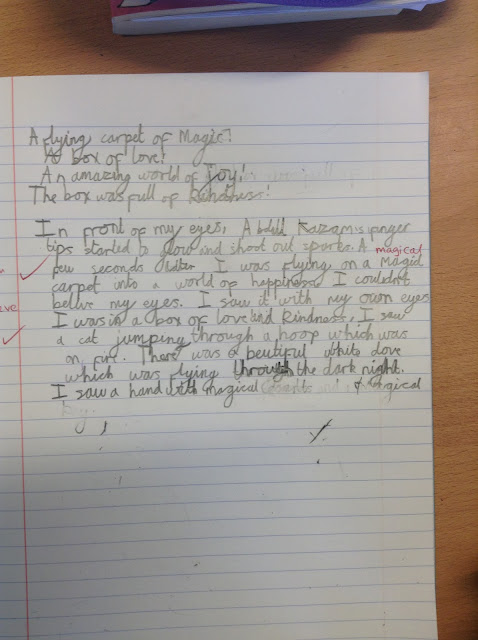 A flying carpet of Magic!
A box of love!
An amazing world of Joy!
The box was full of Kindness!
In front of my eyes, Abdul Kazam,s finger
tips started to glow and shoot out sparks. A magical
few seconds later I was flying on a Magic
carpet into a world of happiness. I couldn't
belive my eyes. I saw it with my own eyes
I was in a box of love and Kindness, I saw
a cat jumping through a hoop which was
on fire. There was a beutiful white dove
which was flying through the dark night.
I saw a hand with magical & magical